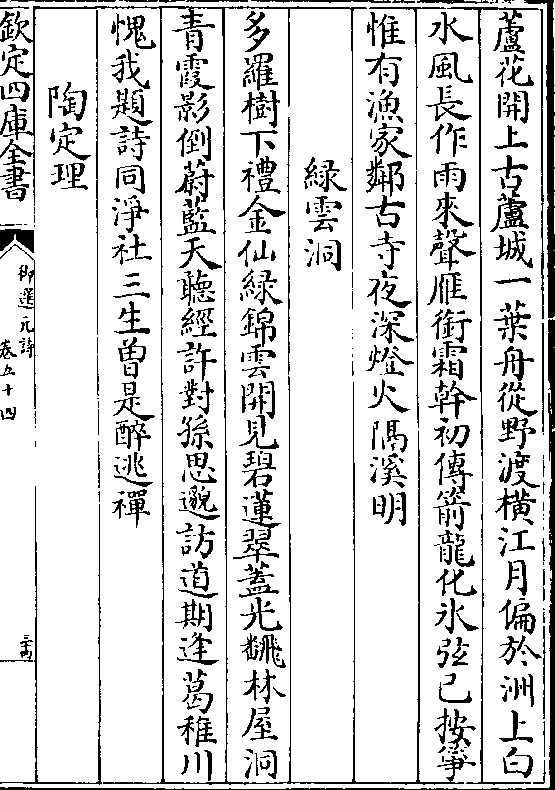 蘆花開上古蘆城一葉舟從野渡橫江月偏於洲上白
水風長作雨來聲雁銜霜幹初傳箭龍化氷弦已按箏
惟有漁家鄰古寺夜深燈火隔溪明
綠雲洞
多羅樹下禮金仙綠錦雲開見碧蓮翠蓋光飜林屋洞
青霞影倒蔚藍天聽經許對孫思邈訪道期逢葛稚川
愧我題詩同淨社三生曽是醉逃禪
陶定理
欽定四庫全書
御選元詩
卷五十四